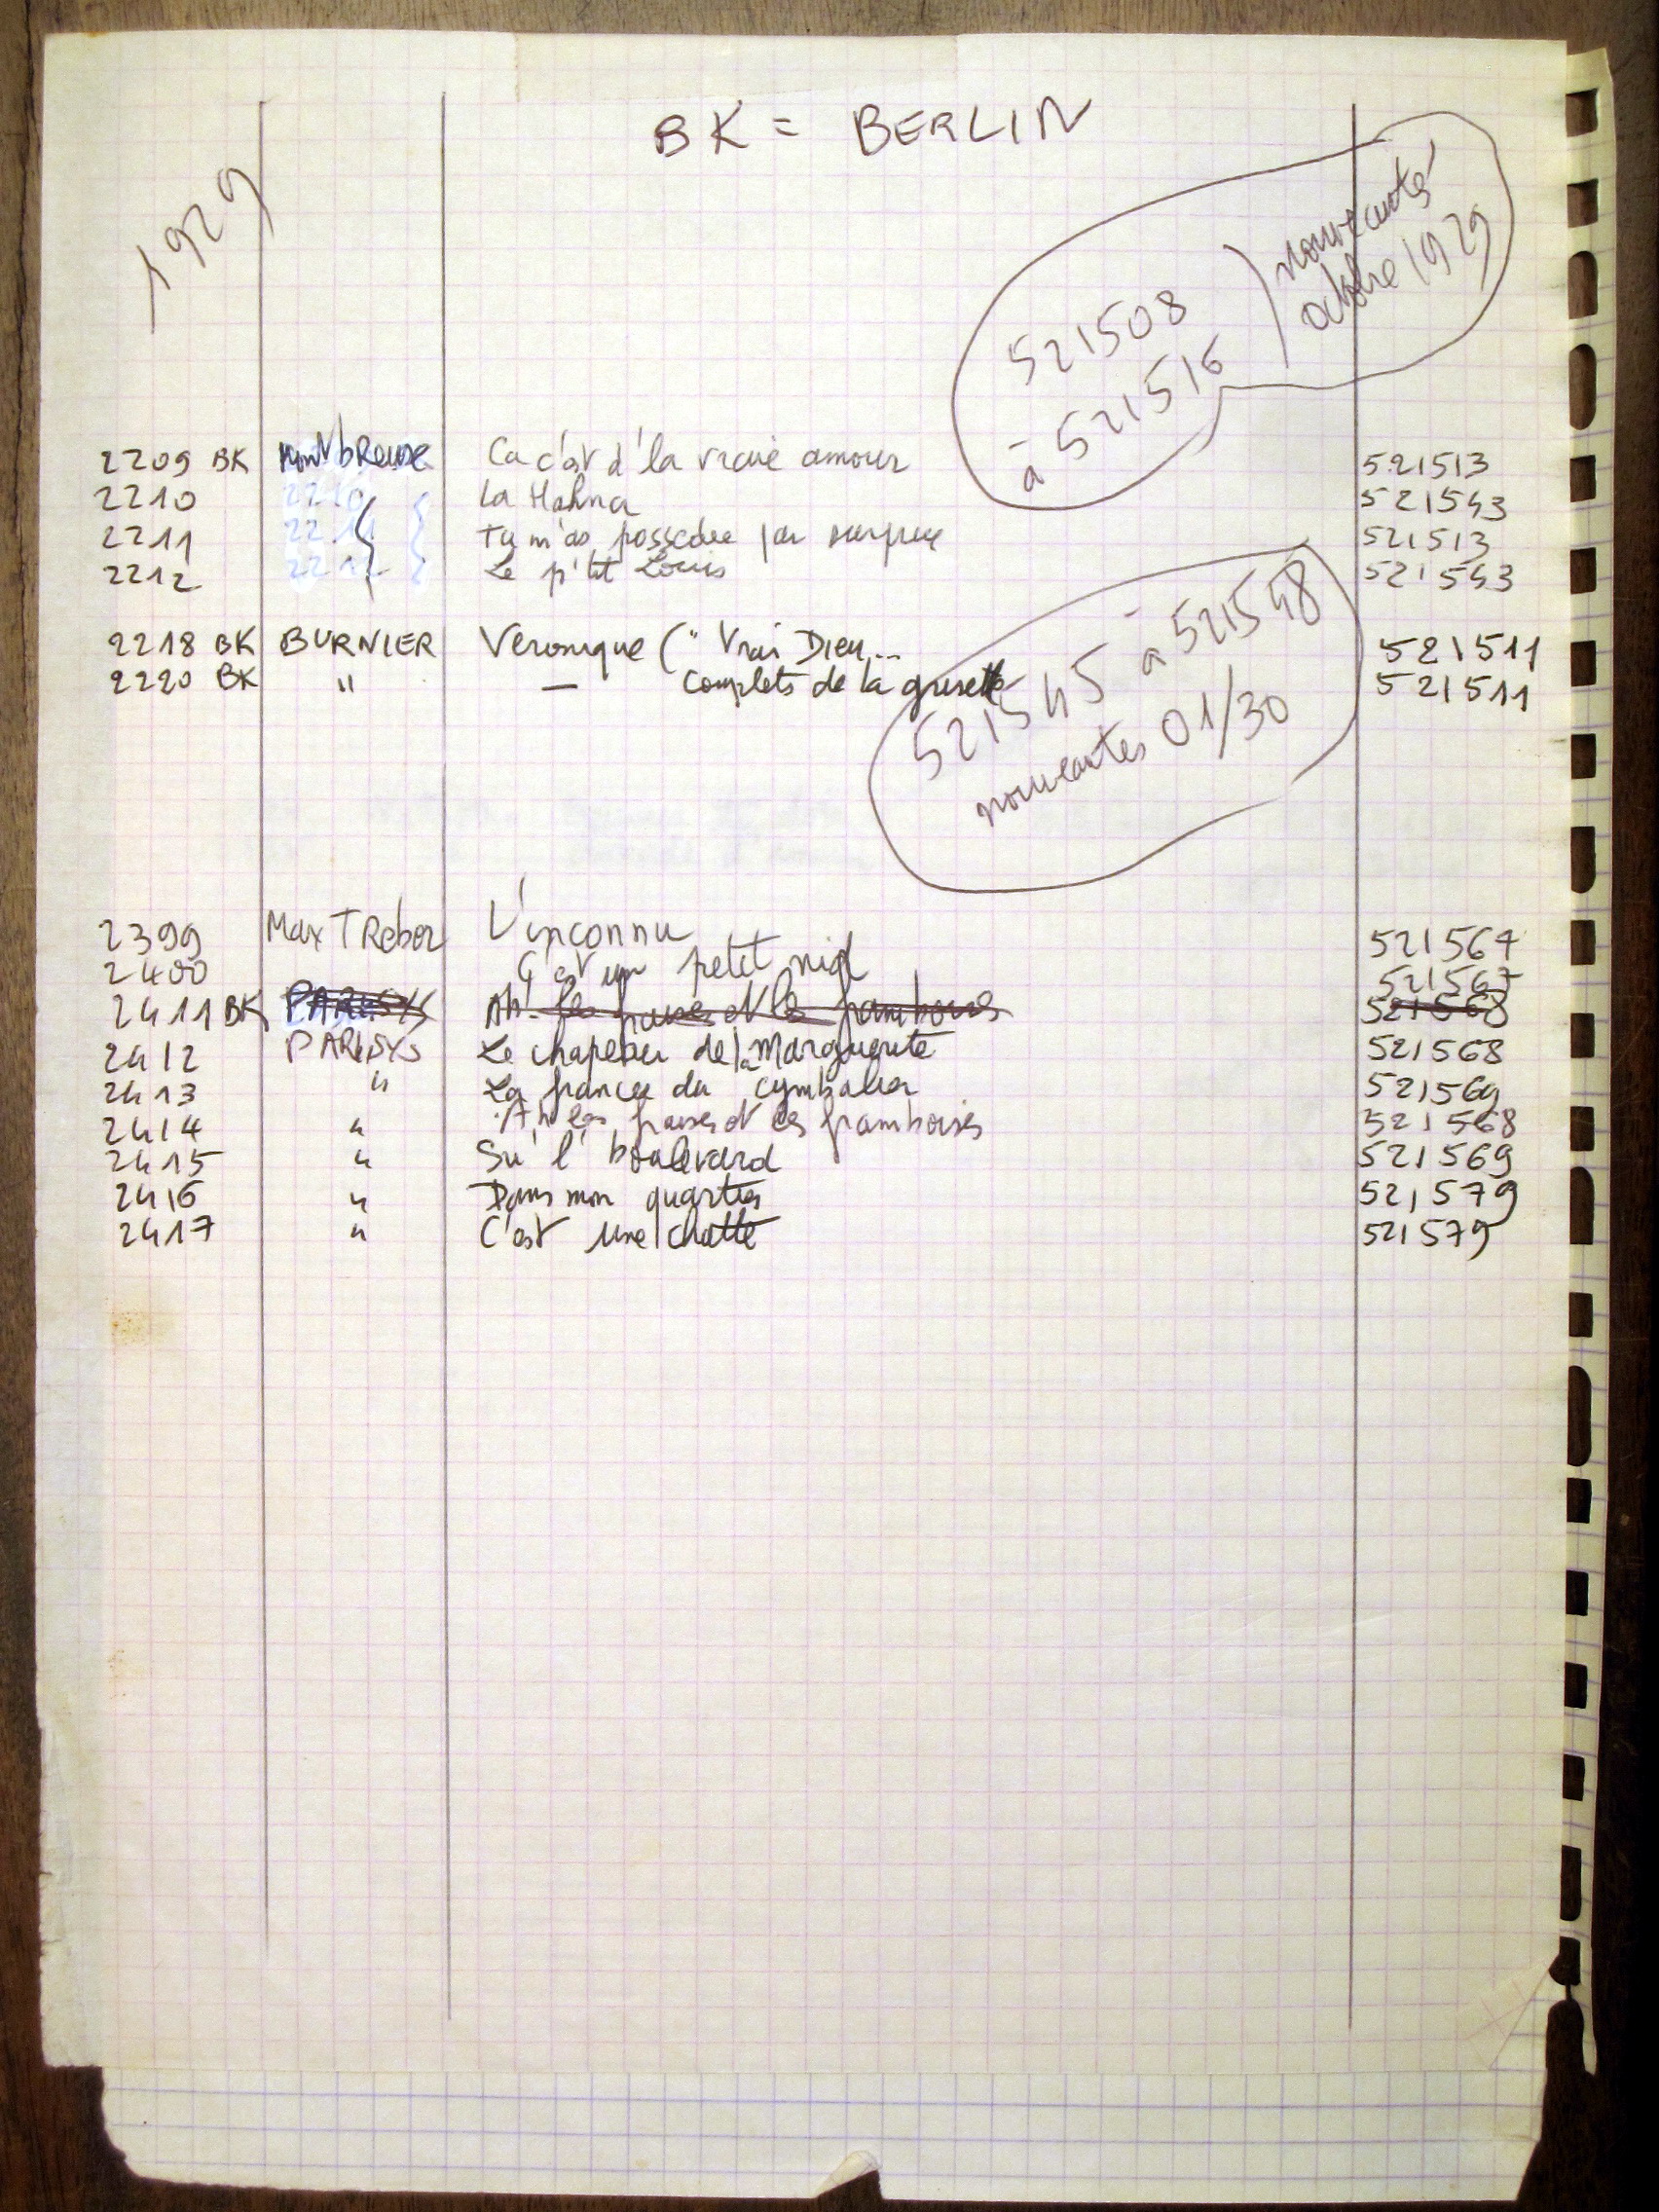 BK = BERLIN
1929
521508
à 521516
nouveautés
octobre 1929
2209 BK Montbreuse Ca c'est d'la vraie amour 521513
2210 La Hahna 521543
2211 Tu m'as possedée par surprise 521513
2212 Le p'tit Louis 521543
2218 BK BURNIER Veronique (" Vrai Dieu... 521511
2220 BK " — Complets de la grisette 521511
521545 à 521548
nouveautes 01/30
2399 Max TRebor L'inconnu 521567
2400 C'est un petit nid 521567
2411 BK PARISYS Ah! les fraises et les framboises 521568
2412 PARISYS Le chapeau de la Marguerite 521568
2413 " La fiancée du cymbalier 521569
2414 " Ah les fraises et les framboises 521568
2415 " Su' l' boulevard 521569
2416 " Dans mon quartier 521579
2417 " C'est une chatte 521579